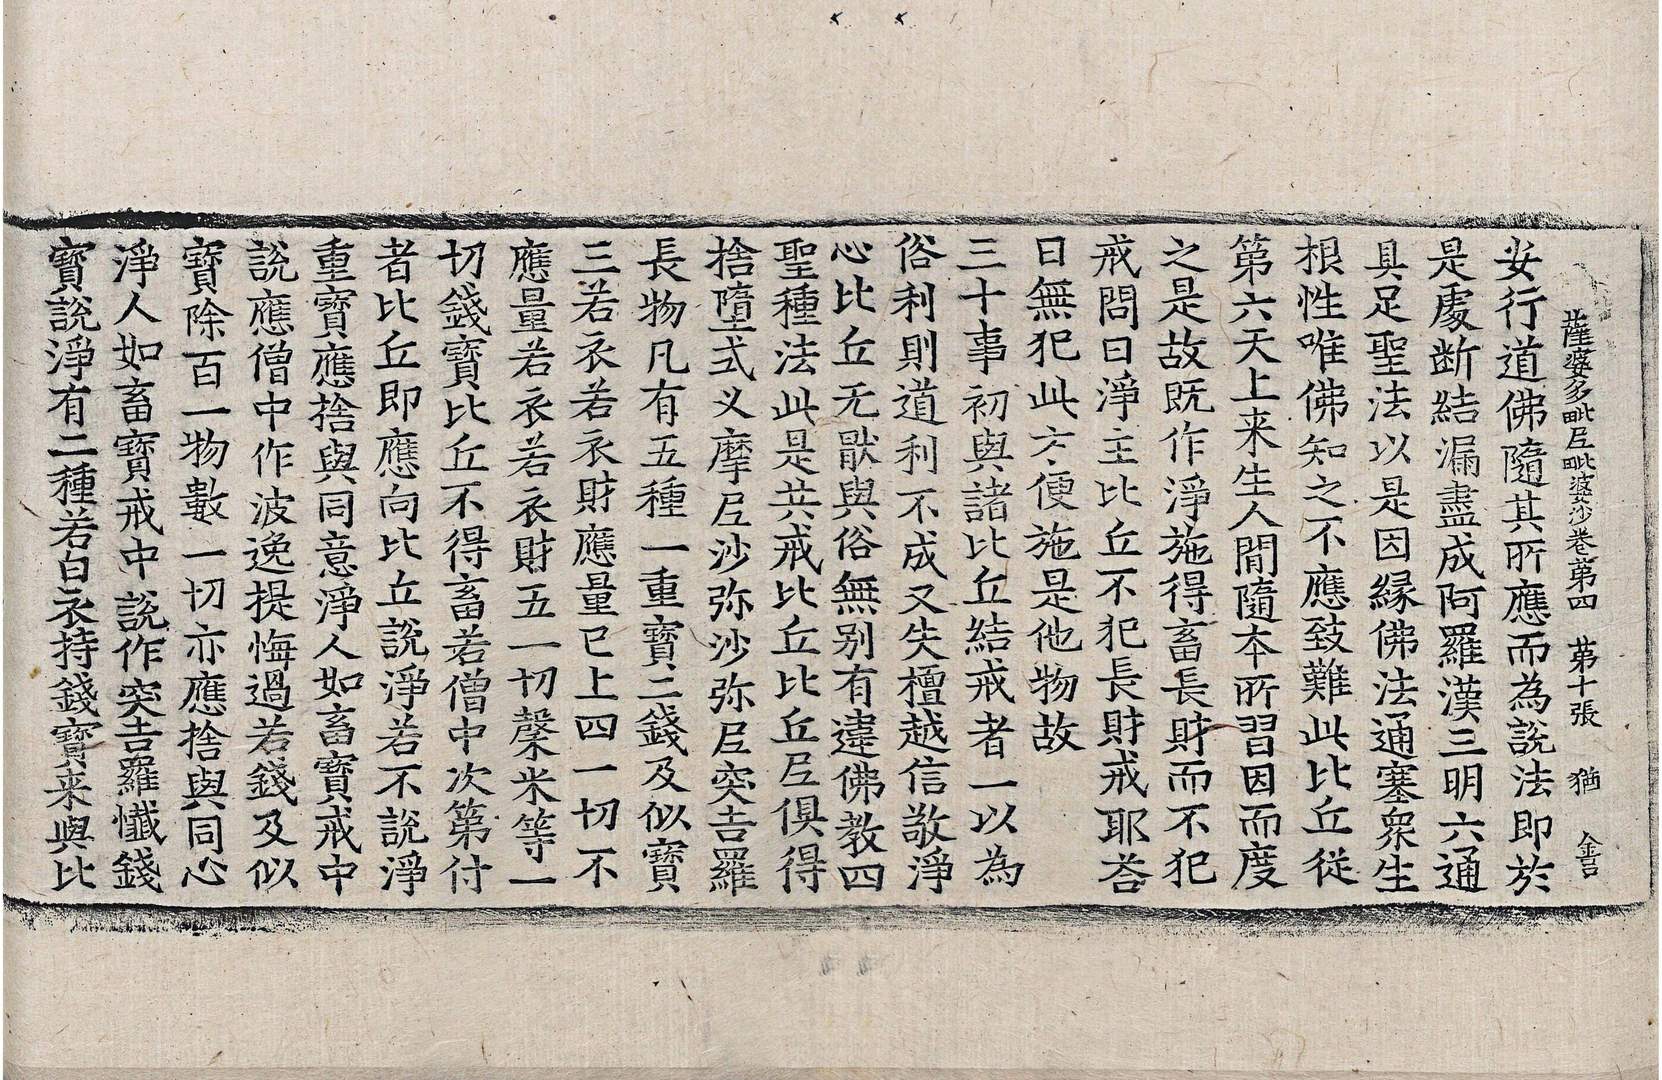 薩婆多毗尼毗婆沙卷第四　第十張　猶
安行道佛隨其所應而為說法即於
是處断結漏盡成阿羅漢三明六通
具足聖法以是因緣佛法通塞衆生
根性唯佛知之不應致難此比丘從
第六天上来生人閒隨本所習因而度
之是故既作淨施得畜長財而不犯
戒問曰淨主比丘不犯長財戒耶荅
曰無犯此方便施是他物故
三十事初與諸比丘結戒者一以為
俗利則道利不成又失檀越信敬淨
心比丘无猒與俗無別有違佛教四
聖種法此是共戒比丘比丘尼俱得
捨墮式叉摩尼沙弥沙弥尼突吉羅
長物凡有五種一重寶二錢及似寶
三若衣若衣財應量已上四一切不
應量若衣若衣財五一切糓米等一
切錢寶比丘不得畜若僧中次第付
者比丘即應向比丘說淨若不說淨
重寶應捨與同意淨人如畜寶戒中
說應僧中作波逸提悔過若錢及似
寶除百一物數一切亦應捨與同心
淨人如畜寶戒中說作突吉羅懺錢
寶說淨有二種若白衣持錢寶来與比